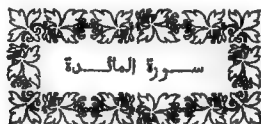 سورة المائدة